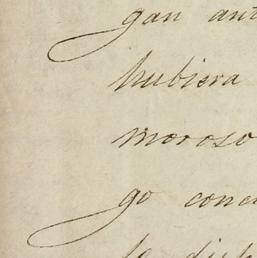 gan ant
hubiera
moroso
go conc
la disp